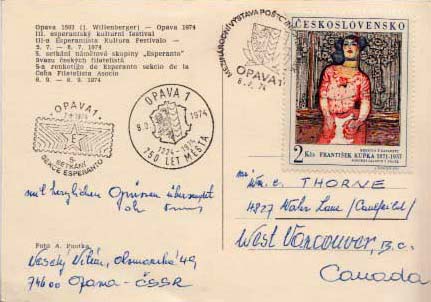 Opava 1593 (J. Willenberger) - Opava 1974
III. esperantský kulturní festival
III-a Esperantista Kultura Festivalo -
5. 7. - 8. 7. 1974
5. setkání námětové skupiny „Esperanto"
Svazu českých filatelistů
5-a renkotiĝo de Esperanto sekcio de la
Ĉeĥa Filatelista Asocio
6. 9. - 8. 9. 1974
MEZINÁRODNÍ VÝSTAVA
OPAVA 1
ČESKOSLOVENSKO
2 Kčs FRANTIŠEK KUPKA 1871-1957
OPAVA 1
E
5.
SETKÁNÍ
SEKCE ESPERANTO
OPAVA 1
1974
1224-1974
750 LET MĚSTA
mit herzlichen Grüssen
THORNE
4827 Water Lane (Caulfeild)
West Vancouver, B.C.
Canada
Foto A.
Veselý Vilém, 49
74600 Opava - ČSSR